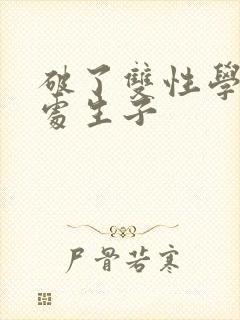 破了雙性學
處生子
尸骨若寒